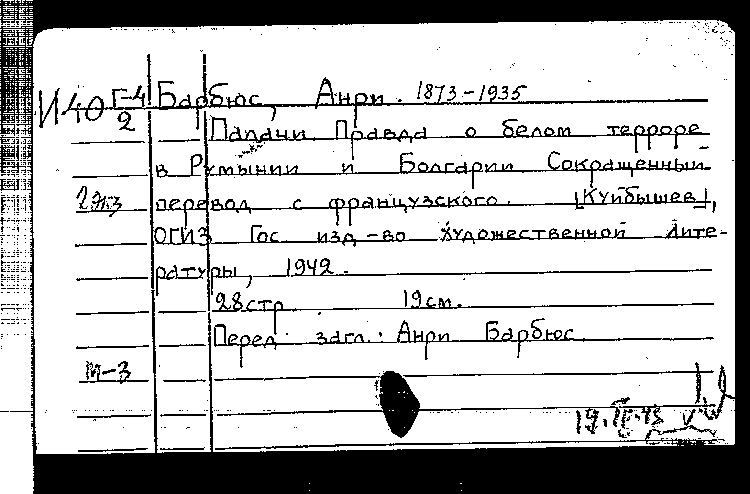 И40 Г-4/2 Барбюс, Анри. 1873-1935
Палачи. Правда о белом терроре
в Румынии и Болгарии Сокращенный
2 экз перевод с французского. [Куйбышев],
ОГИЗ Гос изд-во художественной лите-
ратуры, 1942.
28 стр 19 см.
Перед загл.: Анри Барбюс.
т-3